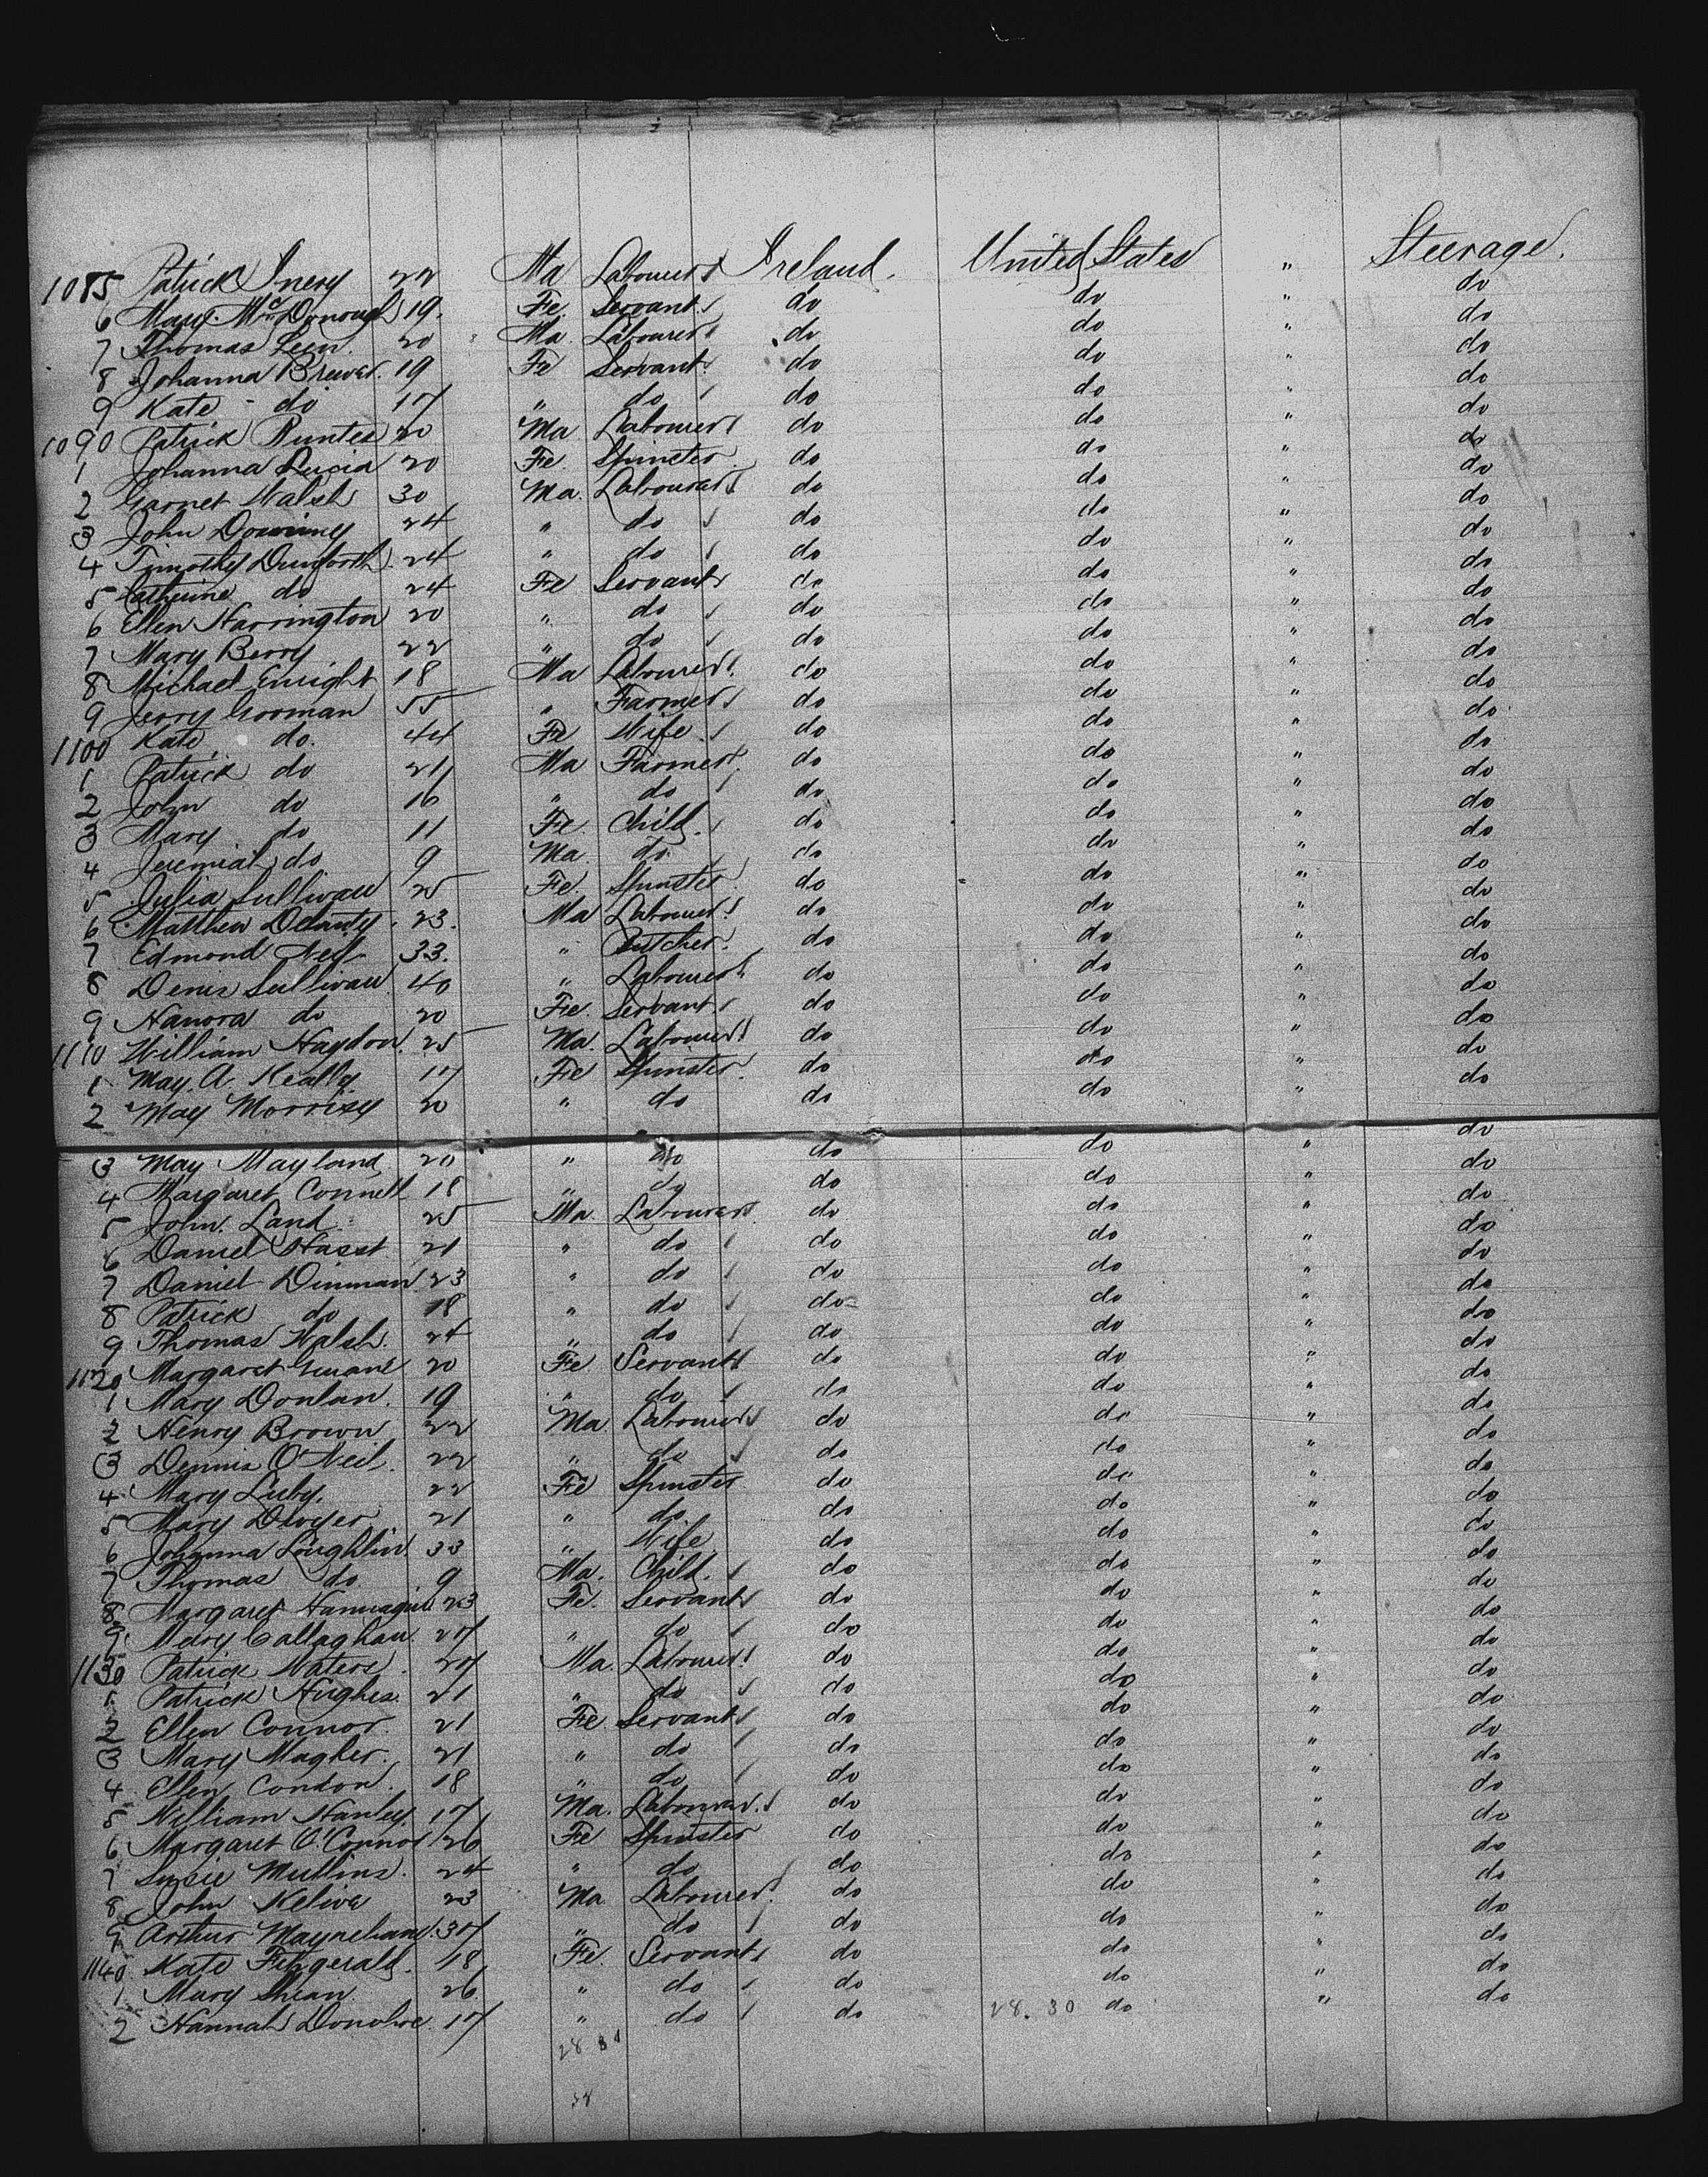 1085 Patrick 22 Ma Labourer Ireland. United States " Steerage.
6 Mary McDonough 19. Fe. Servant do do " do
7 Thomas Leen. 20 Ma. Labourer do do " do
8 Johanna Brewer. 19 Fe Servant do do " do
9 Kate - do 17 " do do do " do
1090 Patrick Runtes 20 Ma Labourer do do " do
1 Johanna Lucia 20 Fe. Spinster do do " do
2 Garnet Walsh 30 Ma. Labourer do do " do
3 John Downiney 24 " do do do " do
4 Timothy Dunforth. 24 " do do do " do
5 Catherine do 24 Fe Servant do do " do
6 Ellen Harrington 20 " do do do " do
7 Mary Berry 22 " do do do " do
8 Michael Enright 18 Ma Labourer do do " do
9 Jerry Gorman 55 " Farmer do do " do
1100 Kate do. 44 Fe Wife do do " do
1 Patrick do 21 Ma Farmer do do " do
2 John do 16 " do do do " do
3 Mary do 11 Fe. Child. do do " do
4 Jeremiah do 9 Ma. do. do do " do
5 Julia Sullivan 25 Fe. Spinster do do " do
6 Matthew Delanty. 23. Ma Labourer do do " do
7 Edmond Neil 33. " Butcher. do do " do
8 Denis Sullivan 40 " Labourer do do " do
9 Hanora do 20 Fe. Servant do do " do
1110 William Haydon. 25 Ma. Labourer do do " do
1 May. A. Keally. 17 Fe Spinster. do do " do
2 May Morrisy 20 " do do do " do
3 May Mayland 20 " do do do " do
4 Margaret Connell 18 " do do do " do
5 John. Land. 25 Ma. Labourer do do " do
6 Daniel Hasst 21 " do do do " do
7 Daniel Dinman 23 " do do do " do
8 Patrick do 18 " do do do " do
9 Thomas Walsh. 24 " do do do " do
1120 Margaret Guane 20 Fe Servant do do " do
1 Mary Donlan. 19 " do do do " do
2 Henry Brown 22 Ma Labourer do do " do
3 Dennis O'Neil. 22 " do do do " do
4 Mary Luby. 22 Fe Spinster do do " do
5 Mary Dwyer 21 " do. do do " do
6 Johanna Loughlin. 33 " Wife do do " do
7 Thomas do 9 Ma. Child. do do " do
8 Margaret 23 Fe. Servant do do " do
9 Mary Callaghan. 27 " do do do " do
1130 Patrick Waters. 27 Ma. Labourer do do " do
1 Patrick Hughes. 21 " do do do " do
2 Ellen Connor. 21 Fe Servant do do " do
3 Mary Magher. 21 " do do do " do
4 Ellen Condon. 18 " do do do " do
5 William Hanley. 17 Ma. Labourer. do do " do
6 Margaret O'Connor 26 Fe Spinster do do " do
7 Susie Mullins. 24 " do do do " do
8 John Keliva 23 Ma Labourer. do do " do
9 Arthur 37 " do do do " do
1140 Kate Fitzgerald. 18 Fe. Servant do do " do
1 Mary Shean. 26. " do do do " do
2 Hannah Donohoe. 17 " do do 28.30 do " do